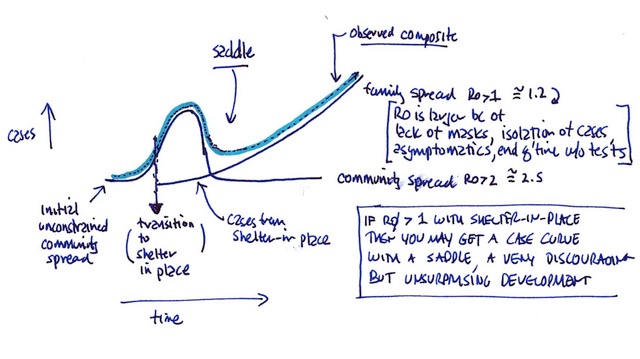 observed composite
saddle
family spread Ro>1 ≅ 1.2
[Ro is larger bc of
lack of masks, isolation of cases,
asymptomatics, end q'tine w/o tests]
cases
community spread Ro>2 ≅ 2.5
initial
unconstrained
community
spread
(transition
to
shelter
in place)
cases from
shelter-in place
time
IF Ro > 1 WITH SHELTER-IN-PLACE
THEN YOU MAY GET A CASE CURVE
WITH A SADDLE, A VERY DISCOURAGING
BUT UNSURPRISING DEVELOPMENT